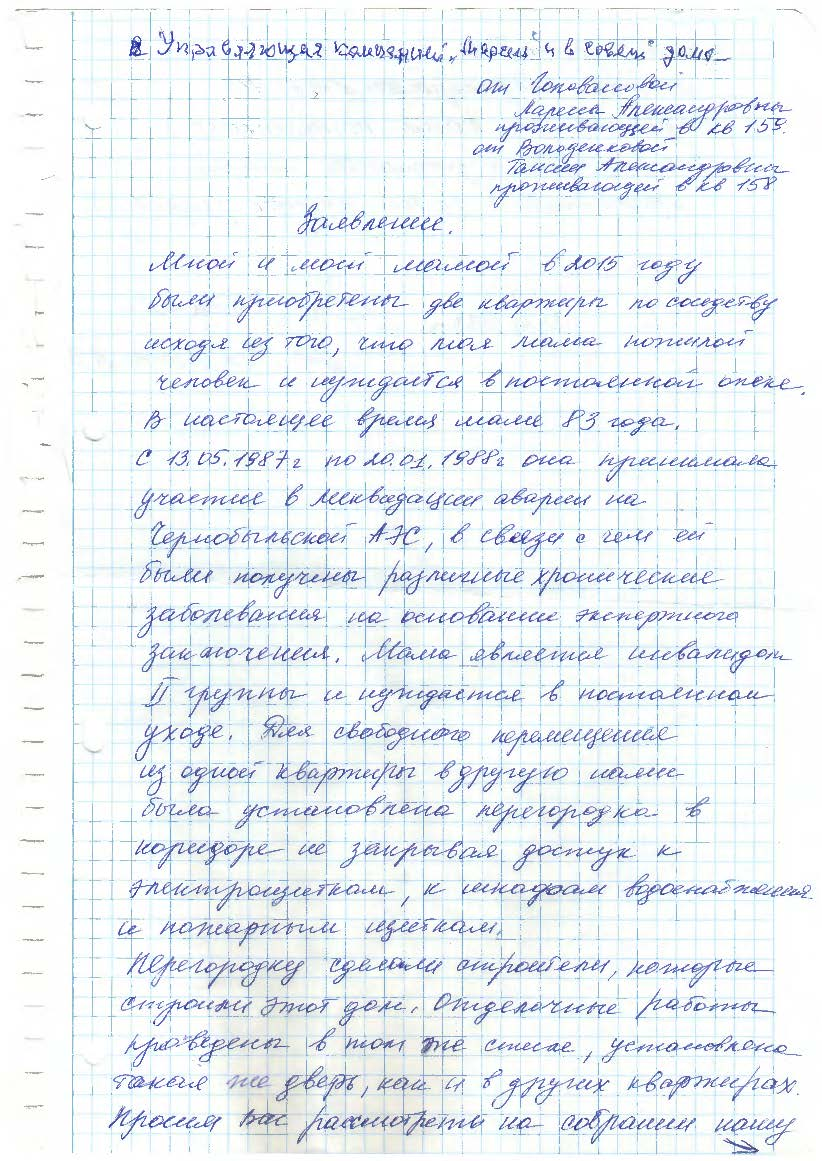 В Управляющая компаний „Марсель" и в совет дома
от Головашовой
Ларисы Александровны
проживающей в кв 159.
от Володенковой
Таисии Александровны
проживающей в кв 158
Заявление.
Мной и моей мамой в 2015 году
были приобретены две квартиры по соседству
исходя из того, что моя мама пожилой
человек и нуждается в постоянной опеке.
В настоящее время маме 83 года.
С 13.05.1987г по 20.01.1988г она принимала
участие в ликвидации аварии на
Чернобыльской АЭС, в связи с чем ей
были получены различные хронические
заболевания на основании экспертного
заключения. Мама является инвалидом
II группы и нуждается в постоянном
уходе. Для свободного перемещения
из одной квартиры в другую нами
была установлена перегородка в
коридоре не закрывая доступ к
электрощиткам, к шкафам водоснабжения
и пожарным щиткам.
Перегородку сделали строители, которые
строили этот дом. Отделочные работы
проведены в том же стиле, установлена
такая же дверь, как и в других квартирах.
Просим Вас рассмотреть на собрании нашу